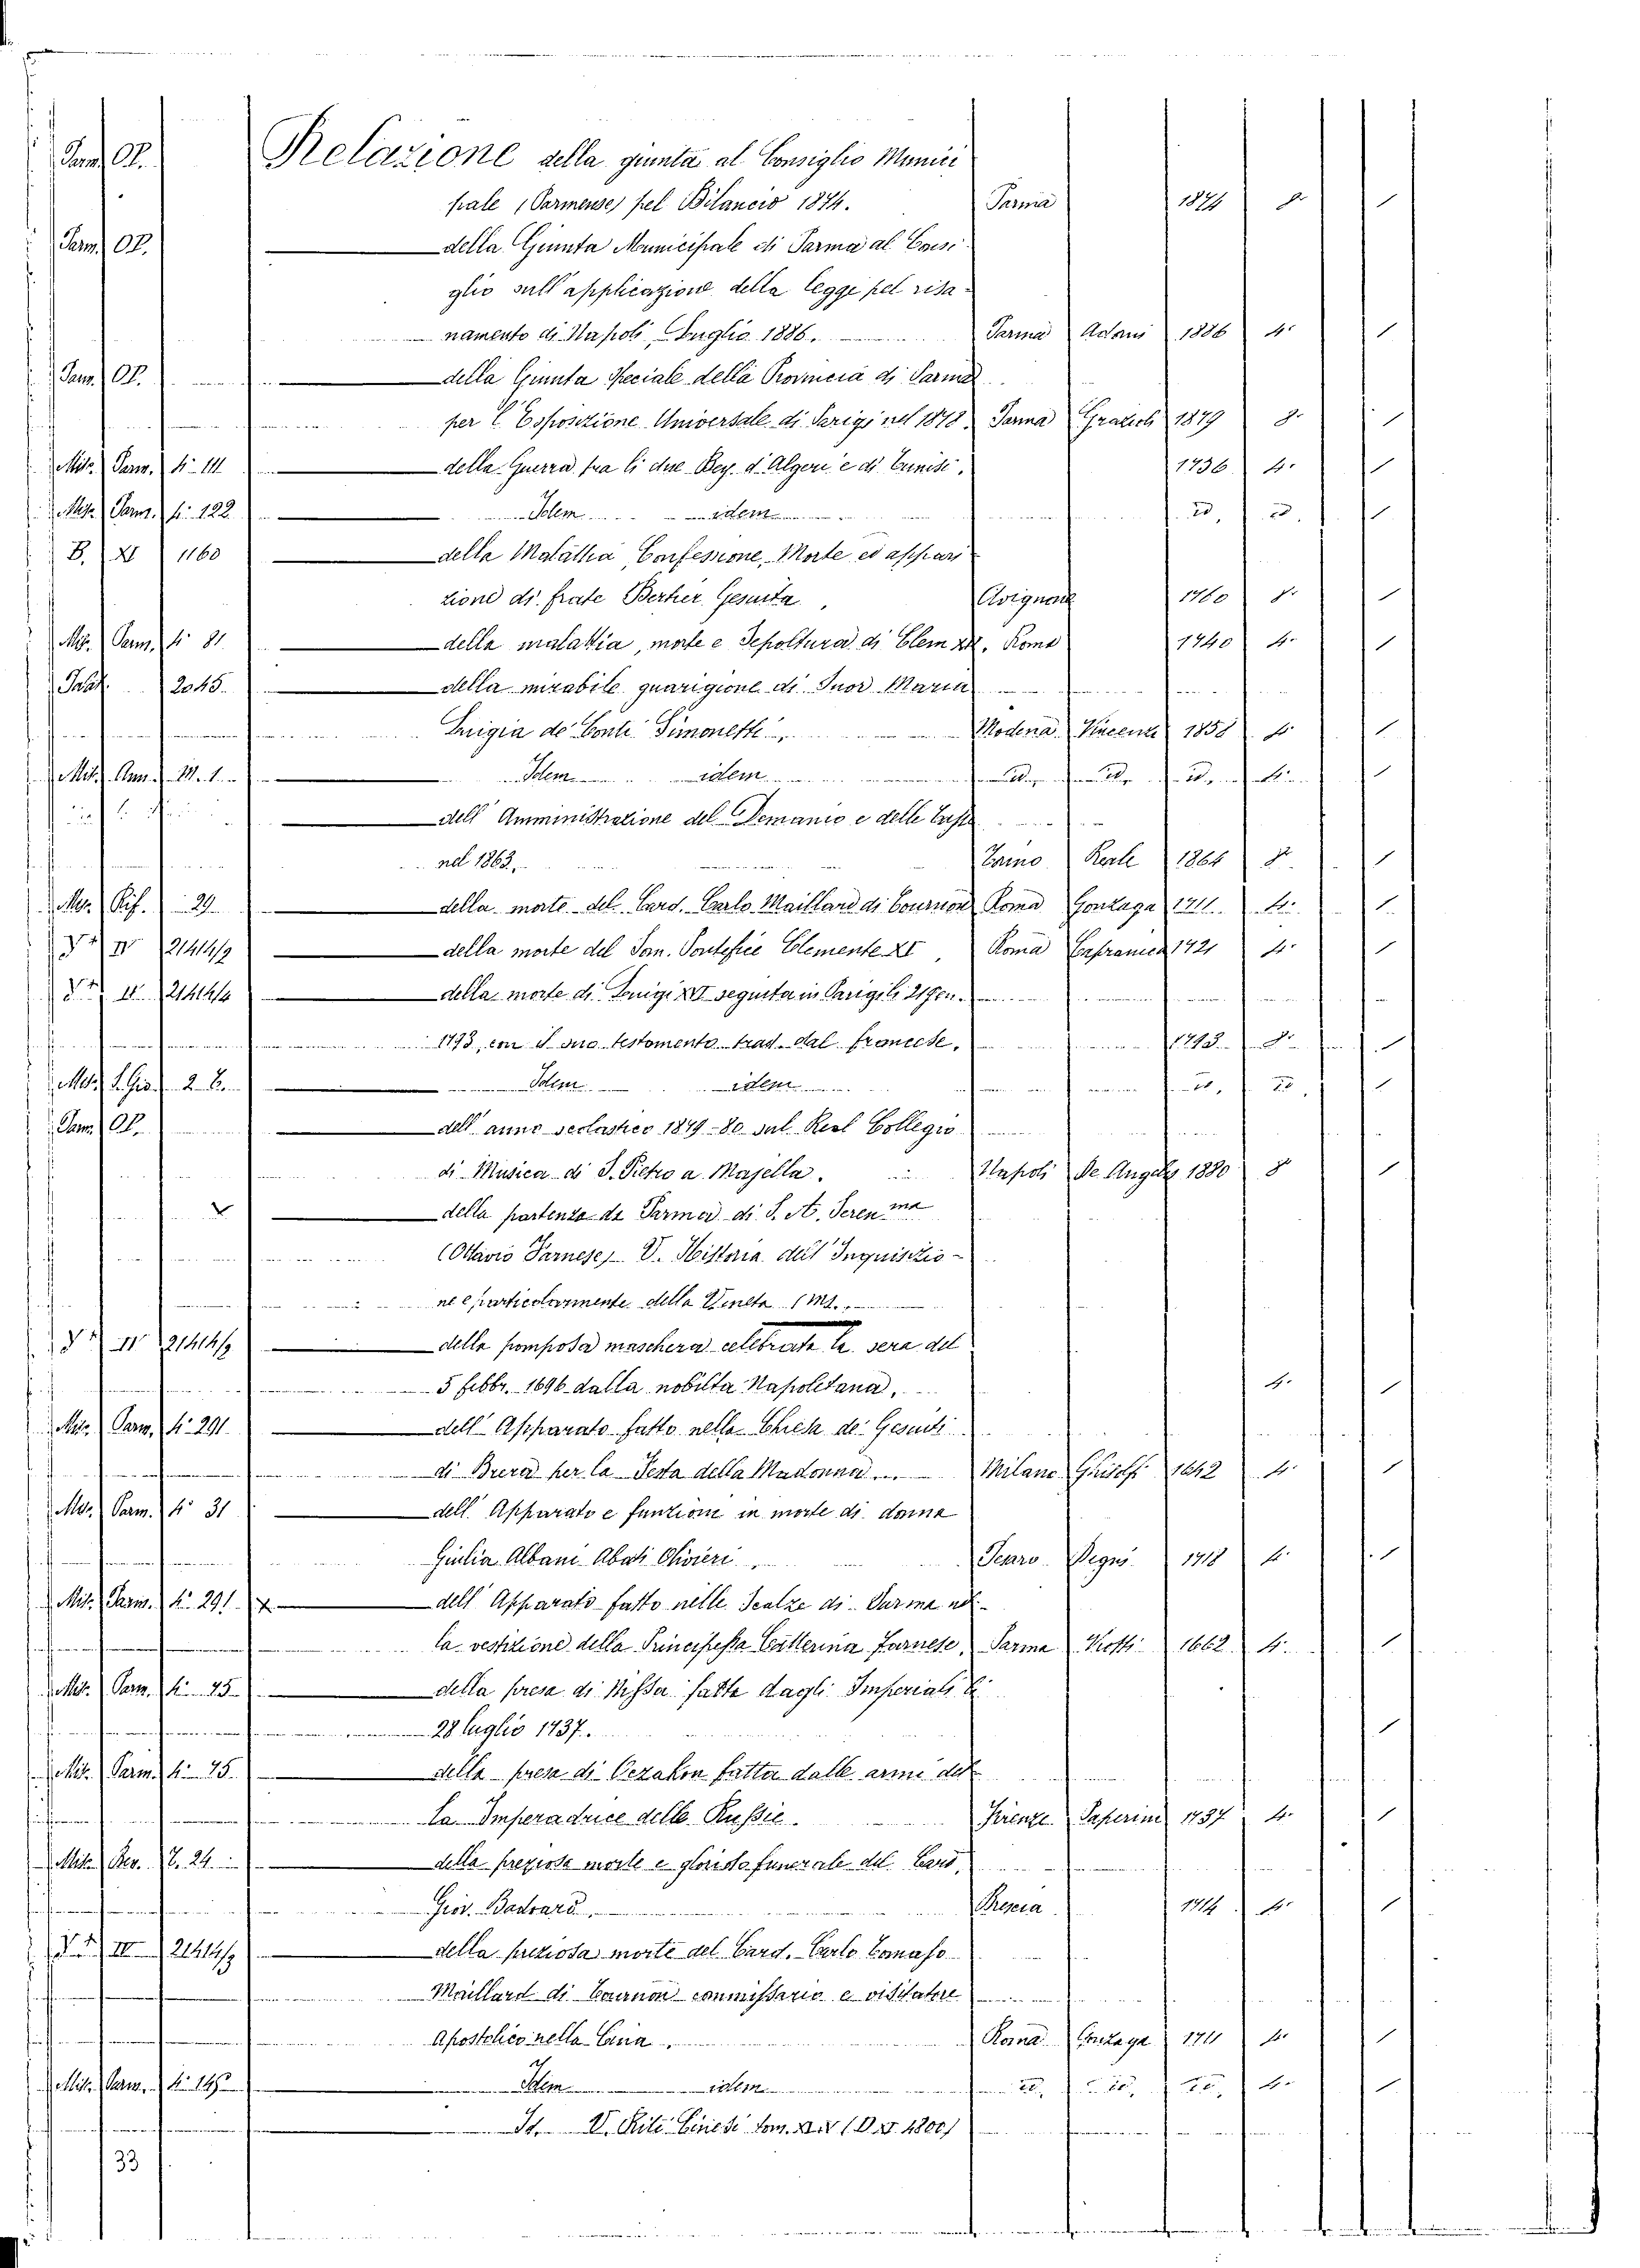 Parm. OP. Relazione della giunta al Consiglio Munici
pale (Parmense) pel Bilancio 1874. Parma 1874 8° 1
Parm. OP. della Giunta Municipale di Parma al Consi
glio sull'applicazione della legge pel risa-
namento di Napoli, Luglio 1886. Parma Adani 1886 4° 1
Parm. OP. della Giunta Speciale della Provincia di Parma
per l'Esposizione Universale di Parigi nel 1878. Parma Grazioli 1879 8° 1
Misc. Parm. 4° 111 della Guerra fra li due Bey d'Algeri e di Tunisi. 1736 4° 1
Misc. Parm. 4° 122 Idem idem id. id. 1
B. XI 1160 della Malattia, Confessione, Morte ed appari
zione di frate Berther Gesuita, Avignone 1760 8° 1
Misc. Parm. 4° 81 della malattia, morte e Sepoltura di Clem XII. Roma 1740 4° 1
Palat. 2045. della mirabile guarigione di Suor Maria
Luigia de' Conti Simonetti, Modena Vincenzi 1858 4° 1
Misc. Ann. M. 1. Idem idem id. id. id. 4° 1
dell'Amministrazione del Demanio e delle Tasse
nel 1863. Torino Reale 1864 8° 1
Misc. Rif. 29 della morte del Card. Carlo Maillard di Tournon Roma Gonzaga 1711. 4° 1
IV 21414/2 della morte del Som. Pontefice Clemente XI, Roma 1721 4° 1
II 21414/4 della morte di Luigi XVI seguita in Parigi li 21 Gen.
1793, con il suo testamento trad. dal francese. 1793 8° 1
Misc. S. Gio. 2 6. Idem idem id. id. 1
Parm. OP. dell'anno scolastico 1879-80 sul Real Collegio
di Musica di S. Pietro a Majella. Napoli De Angelis 1880 8° 1
della partenza da Parma di S. A. Seren.ma
(Ottavio Farnese) V. Historia dell'Inquisizio-
ne e particolarmente della Veneta (M).
IV 21414/2 della pomposa maschera celebrata la sera del
5 febbr. 1696 dalla nobilta Napoletana. 4° 1
Misc. Parm. 4° 291 dell'Apparato fatto nella Chiesa de' Gesuiti
di Brera per la Festa della Madonna. Milano Ghisolfi 1642 4° 1
Misc. Parm. 4° 31 dell'Apparato e funzione in morte di donna
Giulia Albani Abati Olivieri. Pesaro Degni 1718 4° 1
Misc. Parm. 4° 291 dell'Apparato fatto nelle Scalze di Parma nel-
la vestizione della Principessa Catterina Farnese, Parma Viotti 1662 4° 1
Misc. Parm. 4° 75 della presa di Nissa fatta dagli Imperiali li
28 luglio 1737. 1
Misc. Parm. 4° 75 della presa di Oczakon fatta dalle armi del
la Imperadrice delle Russie. Firenze Paperini 1737 4° 1
della preziosa morte e gloriosa funerale del Card.
Giov. Badoaro. Brescia 1714 4° 1
III 21414/2 della preziosa morte del Card. Carlo Tomaso
Maillard di Tournon commissario e visitatore
Apostolico nella Cina. Roma Gonzaga 1711 4° 1
Misc. Parm. 4° 145 Idem idem id. id. id. 4° 1
Id. V. Riti Cinesi tom. (4800)
33